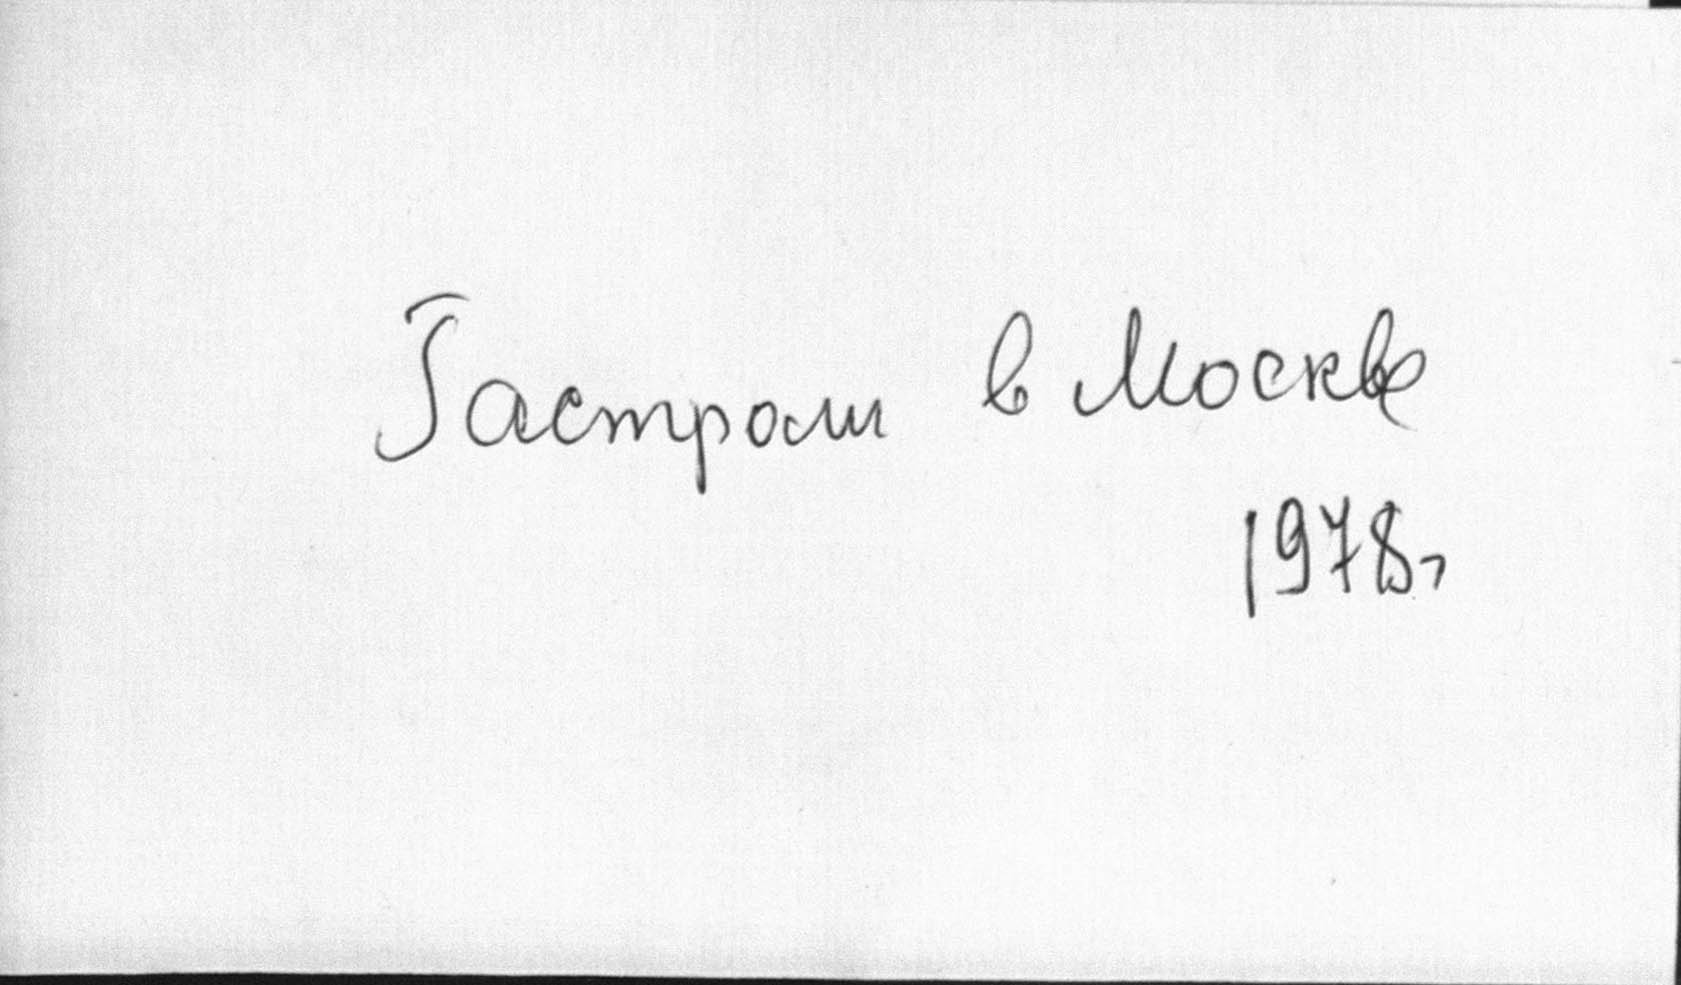 Гастроли в Москве
1978г